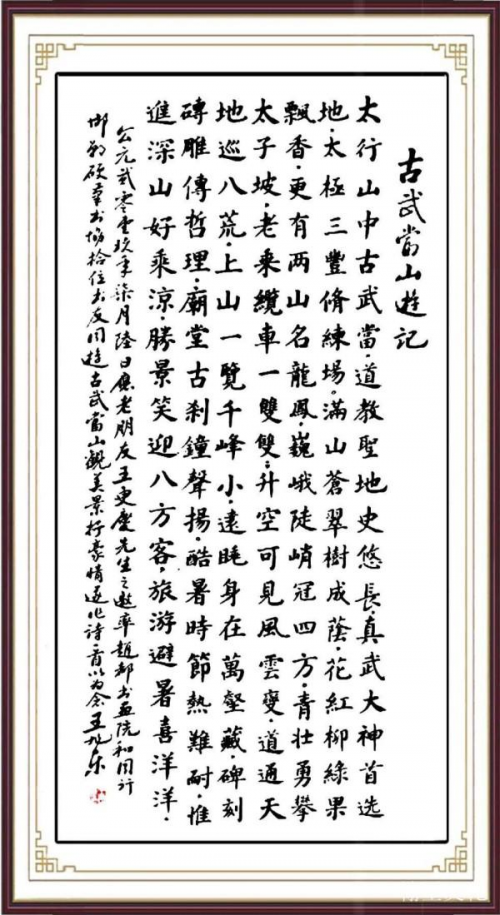 古武當山遊記
太行山中古武當·道教聖地史悠長·真武大神首選
地·太極三豐脩練場。滿山蒼翠樹成蔭·花紅柳綠果
飄香·更有兩山名龍鳳·巍峨陡峭冠四方·青壯勇攀
太子坡·老乘纜車一雙雙·升空可見風雲變·道通天
地巡八荒·上山一覽千峰小·遠眺身在萬壑藏·碑刻
磚雕傳哲理·廟堂古刹鐘聲揚·酷暑時節熱難耐·惟
進深山好乘涼·勝景笑迎八方客·旅游避暑喜洋洋·
公元貳零壹玖年柒月陸日應老朋友王更慶先生之邀率趙都书画院和同行
邯鄲碩书協拾位书友同遊古武當山觀美景抒豪情遂作诗一首以为念王旭东